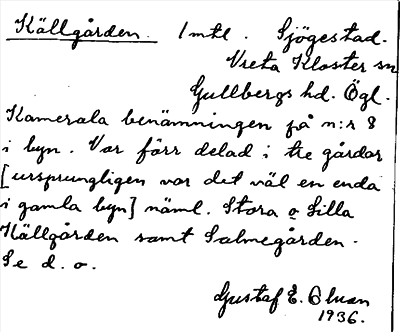 Källgården. 1 mtl. Sjögestad.
Vreta Kloster sn
Gullbergs hd. Ögl.
Kamerala benämningen på n:r 8
i byn. Var förr delad i tre gårdar
[ursprungligen var det väl en enda
i gamla byn] näml. Stora o Lilla
Källgården samt Salmegården.
Se d. o.
Gustaf E. Bluan
1936.